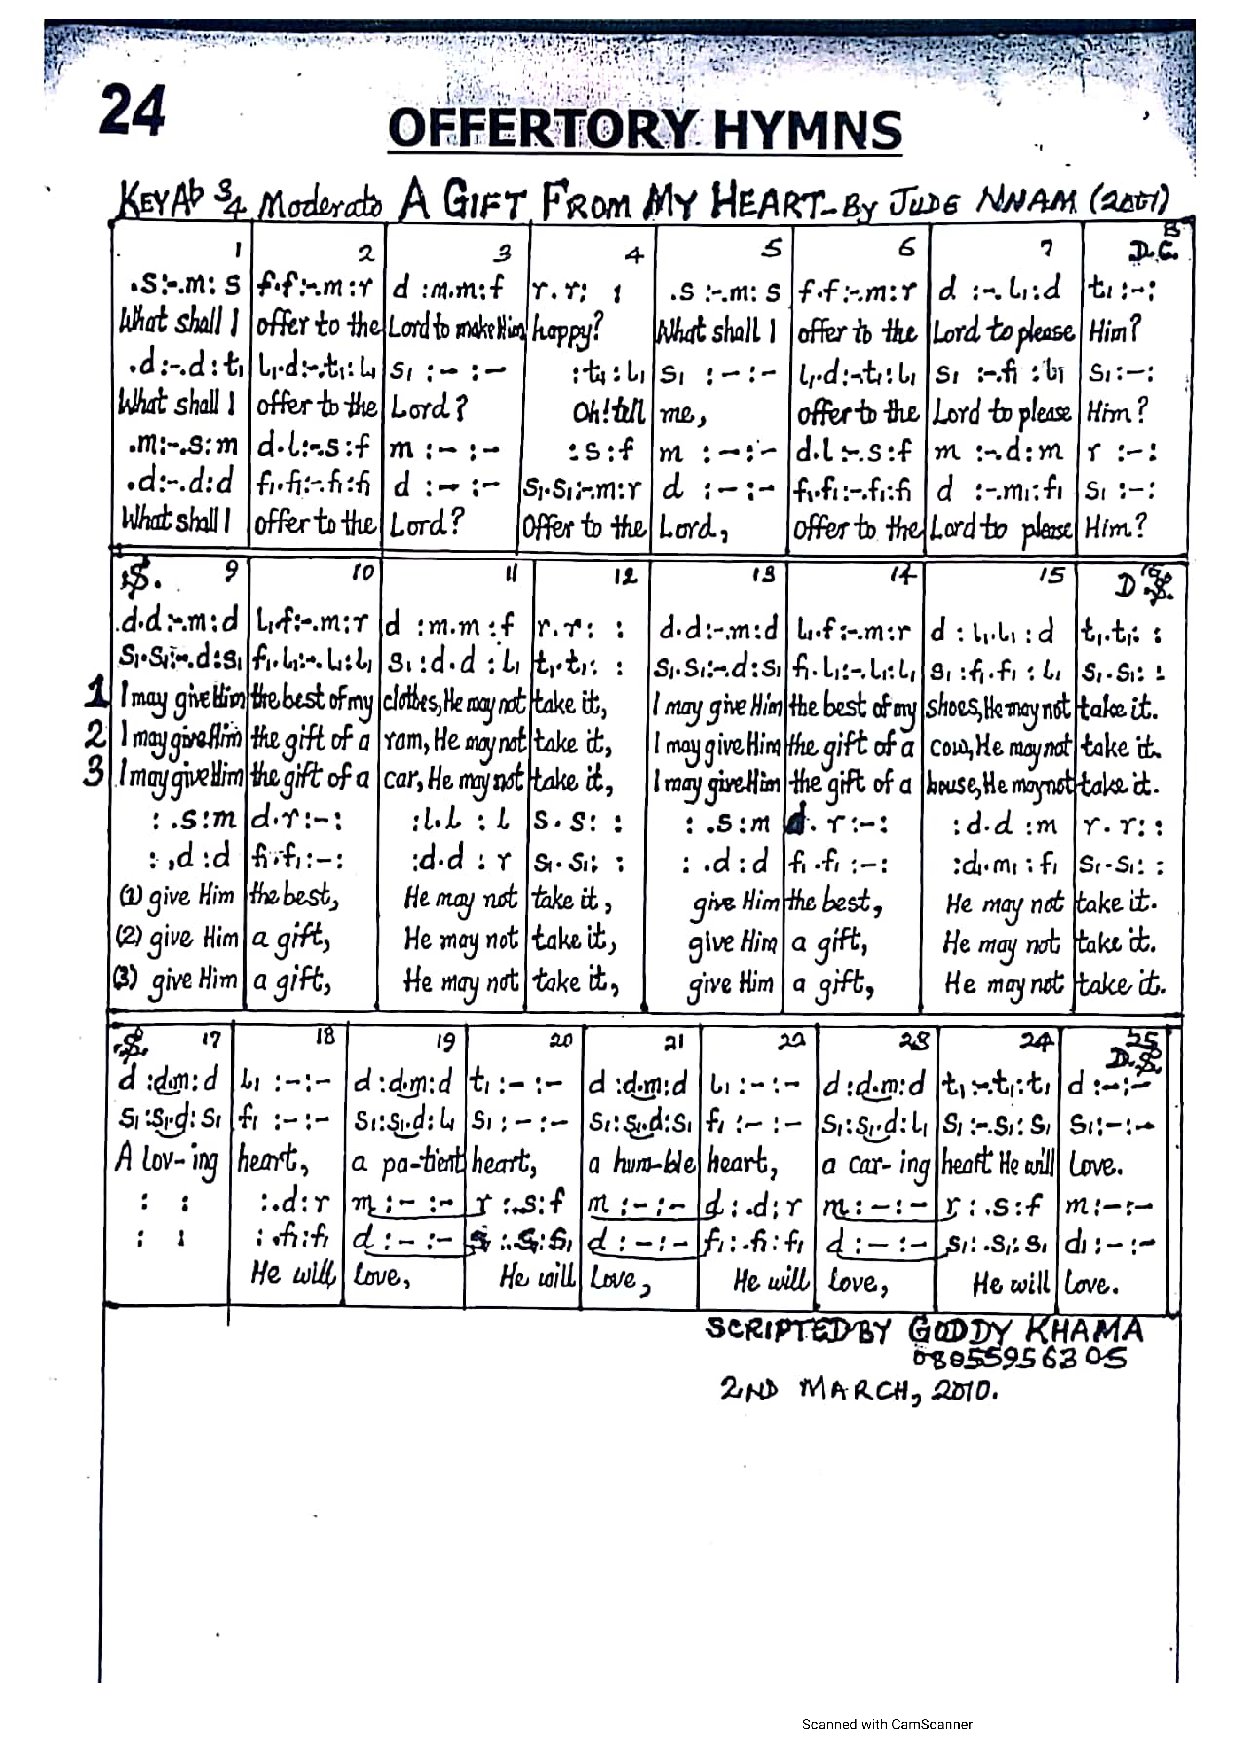 24
OFFERTORY HYMNS
KEY Ab 3/4 Moderato A GIFT FROM MY HEART - BY JUDE NNAM (2001)
1 2 3 4 5 6 7 8 D.C.
.s:-.m:s f.f:-.m:r d :m.m:f r.r: : .s:-.m:s f.f:-.m:r d :-.l₁:d t₁:-:
What shall I offer to the Lord to make Him happy? What shall I offer to the Lord to please Him?
.d:-.d:t₁ l₁.d:-.t₁:l₁ s₁ :- :- :t₁:l₁ s₁ :-:- l₁.d:-.t₁:l₁ s₁ :-.fi :l₁ s₁:-:
What shall I offer to the Lord? Oh! tell me, offer to the Lord to please Him?
.m:-.s:m d.l:-.s:f m :- :- :s:f m :-:- d.l:-.s:f m :-.d:m r :-:
.d:-.d:d f₁.f₁:-.f₁:f₁ d :- :- s₁.s₁:-.m:r d :-:- f₁.f₁:-.f₁:f₁ d :-.m₁:f₁ s₁ :-:
What shall I offer to the Lord? Offer to the Lord, offer to the Lord to please Him?
𝄋. 9 10 11 12 13 14 15 16 D.𝄋.
.d.d:-.m:d l₁.f:-.m:r d :m.m:f r.r: : d.d:-.m:d l₁.f:-.m:r d :l₁.l₁:d t₁.t₁: :
s₁.s₁:-.d:s₁ f₁.l₁:-.l₁:l₁ s₁:d.d:l₁ t₁.t₁: : s₁.s₁:-.d:s₁ f₁.l₁:-.l₁:l₁ s₁:f₁.f₁:l₁ s₁.s₁: :
1 I may give Him the best of my clothes, He may not take it, I may give Him the best of my shoes, He may not take it.
2 I may give Him the gift of a ram, He may not take it, I may give Him the gift of a cow, He may not take it.
3 I may give Him the gift of a car, He may not take it, I may give Him the gift of a house, He may not take it.
: .s:m d.r:-: :l.l:l s.s: : : .s:m d.r:-: :d.d:m r.r: :
: ,d:d f₁.f₁:-: :d.d:r s₁.s₁: : : .d:d f₁.f₁:-: :d₁.m₁:f₁ s₁.s₁: :
(1) give Him the best, He may not take it, give Him the best, He may not take it.
(2) give Him a gift, He may not take it, give Him a gift, He may not take it.
(3) give Him a gift, He may not take it, give Him a gift, He may not take it.
𝄋. 17 18 19 20 21 22 23 24 25 D.𝄋.
d :d.m:d l₁ :-:- d :d.m:d t₁ :-:- d :d.m:d l₁ :-:- d :d.m:d t₁:-.t₁:t₁ d :-:-
s₁:s₁.d:s₁ f₁ :-:- s₁:s₁.d:l₁ s₁ :-:- s₁:s₁.d:s₁ f₁ :-:- s₁:s₁.d:l₁ s₁:-.s₁:s₁ s₁:-:-
A lov-ing heart, a pa-tient heart, a hum-ble heart, a car-ing heart He will Love.
: : :.d:r m:-:- r:.s:f m:-:- d:.d:r m:-:- r:.s:f m:-:-
: : :.f₁:f₁ d:-:- s₁:.s₁:s₁ d:-:- f₁:.f₁:f₁ d:-:- s₁:.s₁:s₁ d₁:-:-
He will Love, He will Love, He will Love, He will Love.
SCRIPTED BY GODDY KHAMA
08055956305
2ND MARCH, 2010.
Scanned with CamScanner